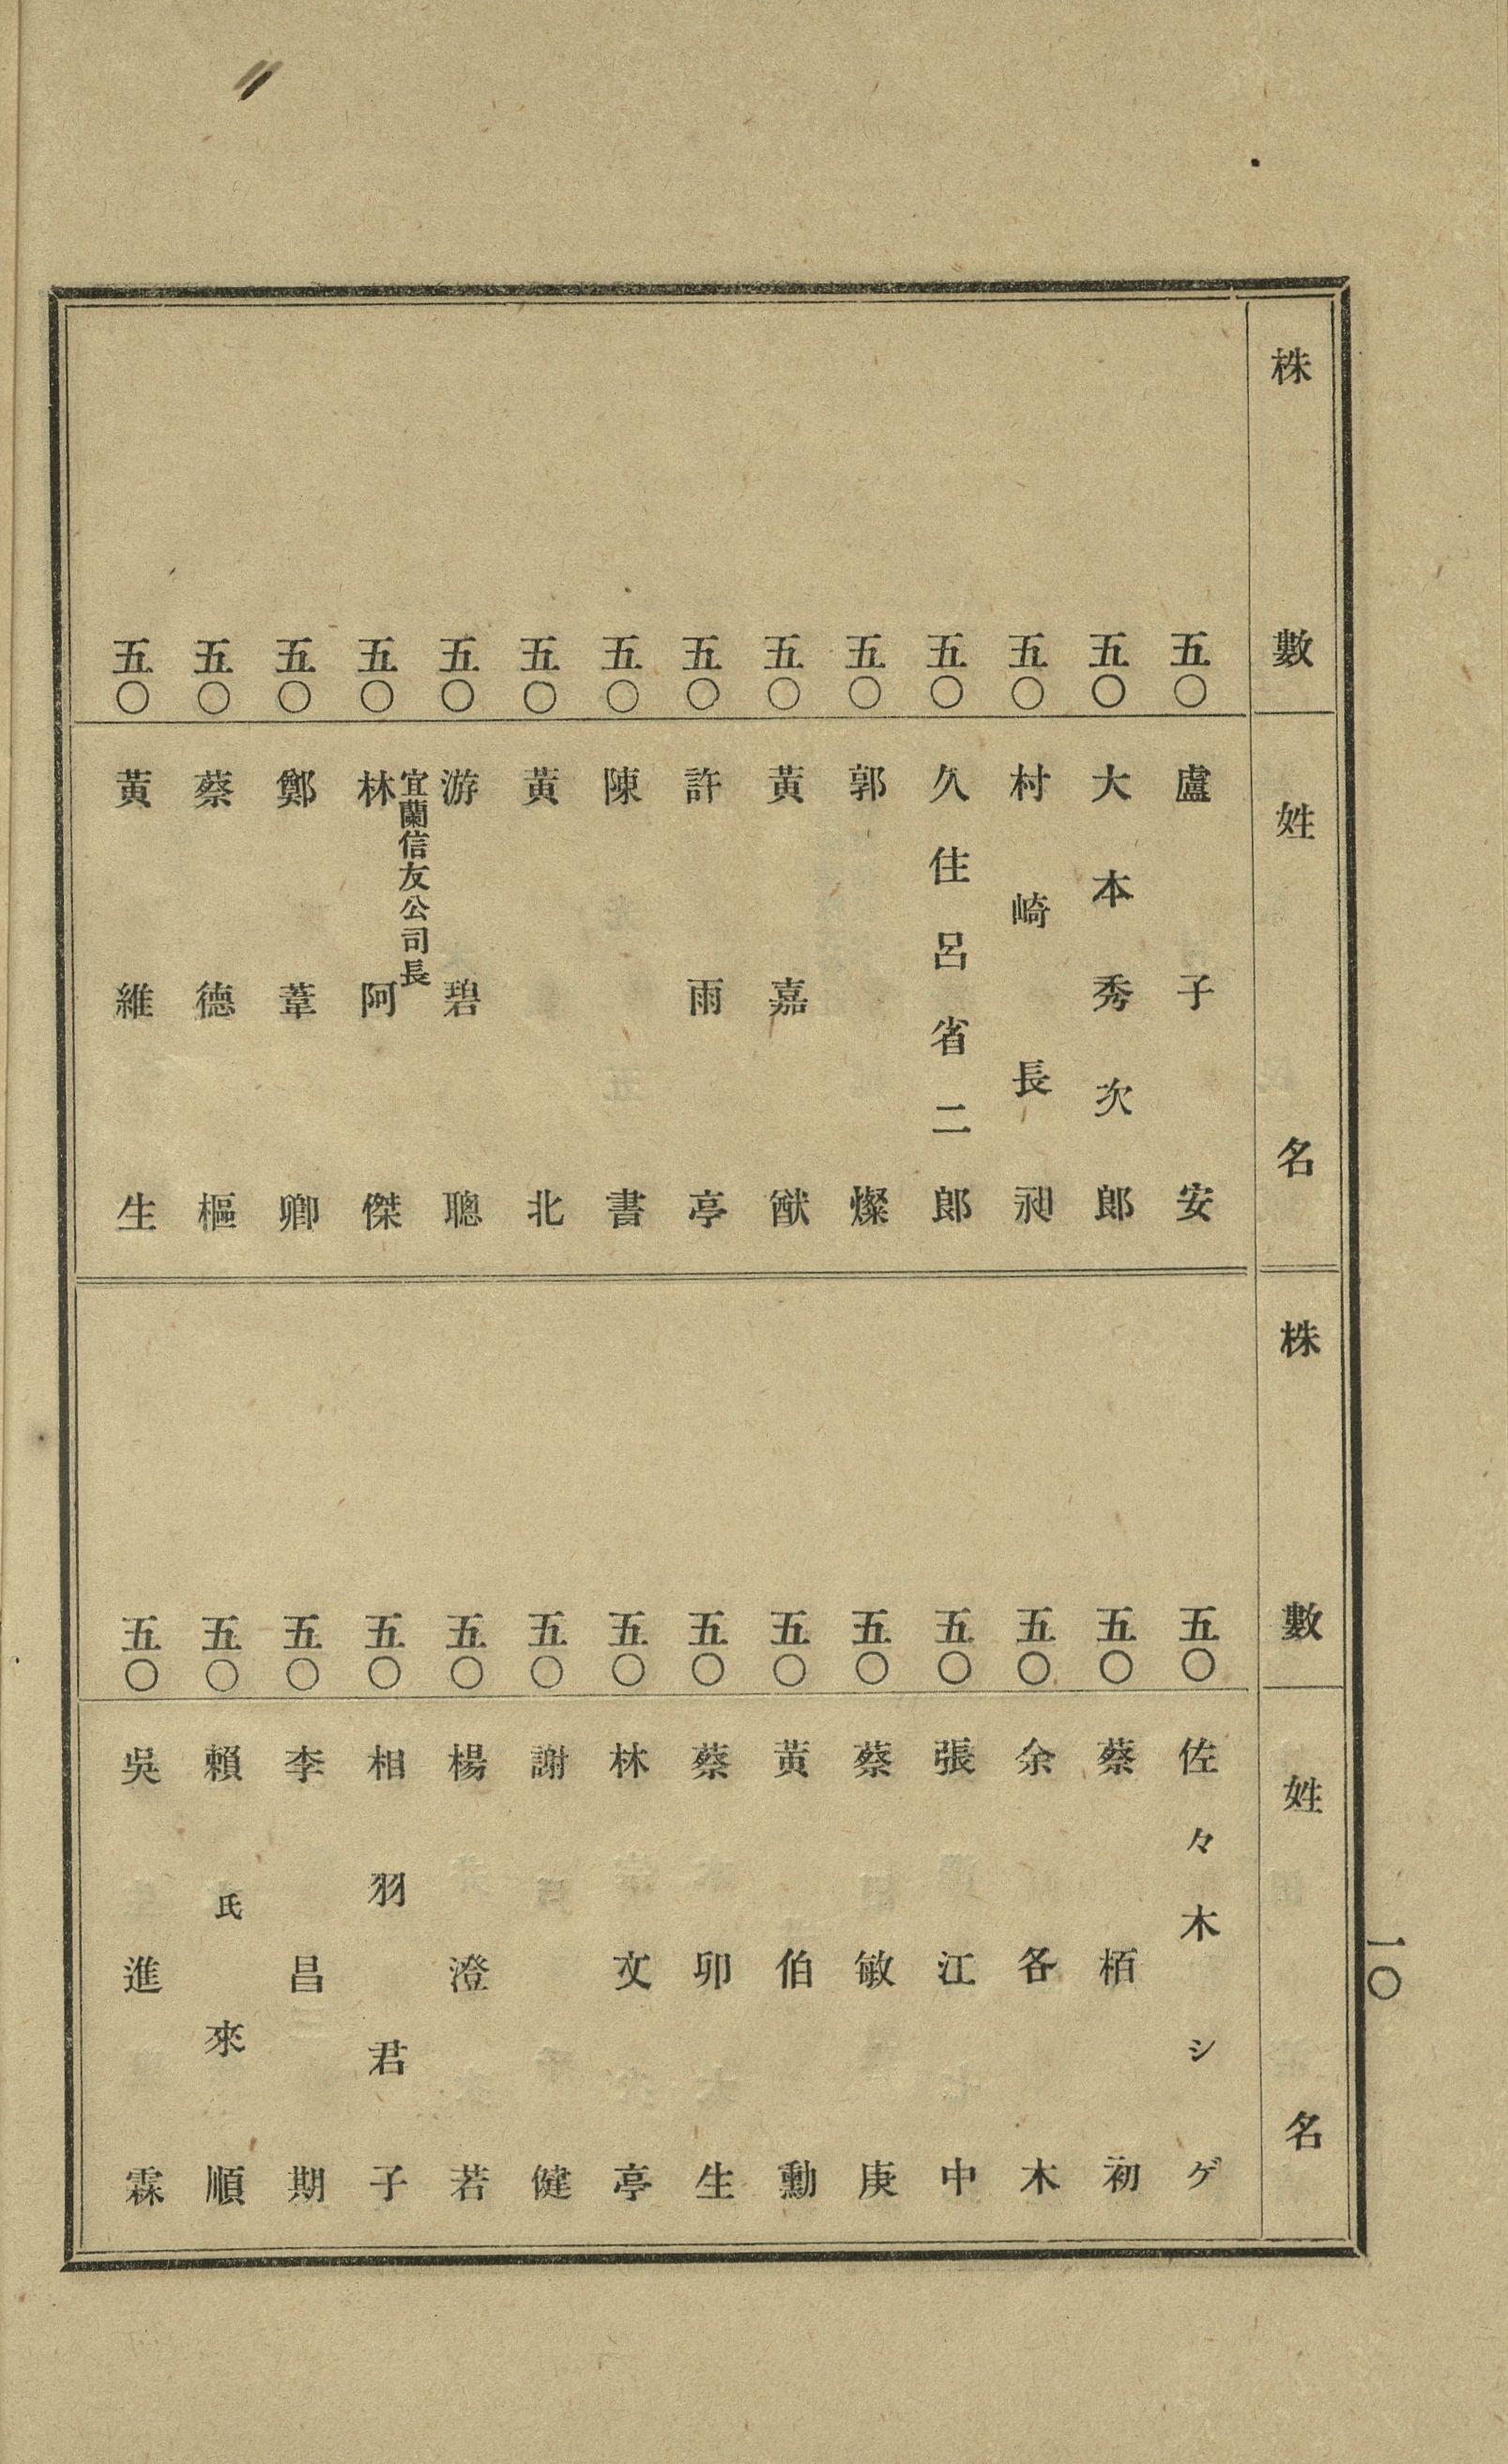 株數 姓名
五〇 盧子安
五〇 大本秀次郎
五〇 村崎長昶
五〇 久住呂省二郎
五〇 郭燦
五〇 黃嘉猷
五〇 許雨亭
五〇 陳書
五〇 黃北
五〇 游碧聰
五〇 宜蘭信友公司長 林阿傑
五〇 鄭葦卿
五〇 蔡德樞
五〇 黃維生
株數 姓名
五〇 佐々木シゲ
五〇 蔡栢初
五〇 余各木
五〇 張江中
五〇 蔡敏庚
五〇 黃伯勳
五〇 蔡卯生
五〇 林文亭
五〇 謝健
五〇 楊澄若
五〇 相羽君子
五〇 李昌期
五〇 賴氏來順
五〇 吳進霖
一〇